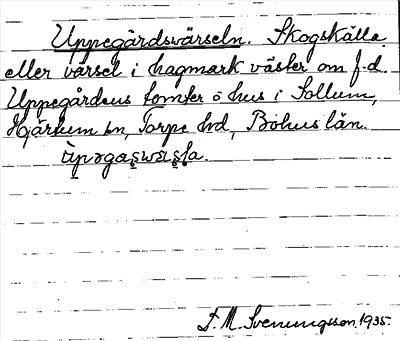 Uppegårdsvärseln. Skogskälla
eller värsel i hagmark väster om f.d.
Uppegårdens tomter o hus i Sollum,
Hjärtum sn, Torpe hd, Bohus län.
S. M. Svenungsson 1935.